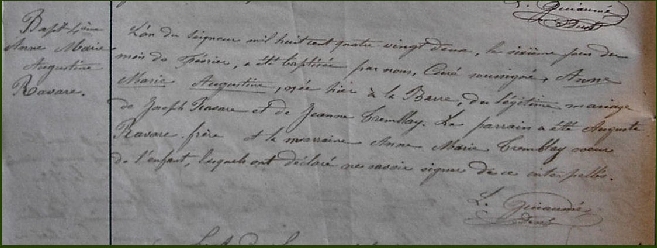 Bapt 4ème
Anne Marie
Augustine
Ravare.
L'an du Seigneur mil huit cent quatre vingt deux, le sixième jour du
mois de Février, a été baptisée par nous, Curé soussigné, Anne
Marie Augustine, née hier à la Barre, du légitime mariage
de Joseph Ravare et de Jeanne Tremblay. Le parrain a été Auguste
Ravare frère et la marraine Anne Marie Tremblay soeur
de l'enfant, lesquels ont déclaré ne savoir signer de ce interpellés.